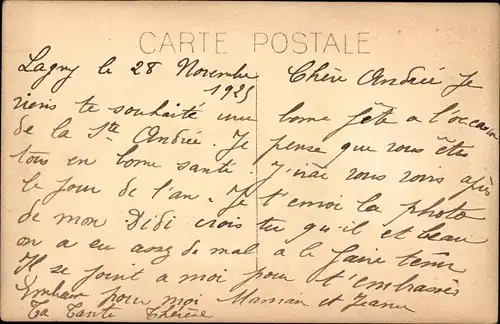 CARTE POSTALE
Lagny le 28 Novembre
1925
Chère Andrée Je
viens te souhaité une bonne fête a l'occasion
de la Ste Andrée. Je pense que vous êtes
tous en bonne santé. J'irai vous voir après
le Jour de l'an. Je t'envoi la photo
de mon Didi crois tu qu'il et beau
on a eu assez de mal a le faire tenir
Il se joint a moi pour t'embrasser
Embrasse pour moi Maman et Jeanne
Ta Tante Thérèse